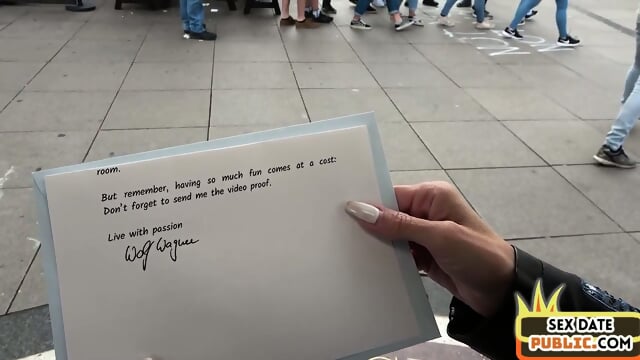 room.
But remember, having so much fun comes at a cost:
Don't forget to send me the video proof.
Live with passion
Wolf Wagner
SEX DATE
PUBLIC.COM